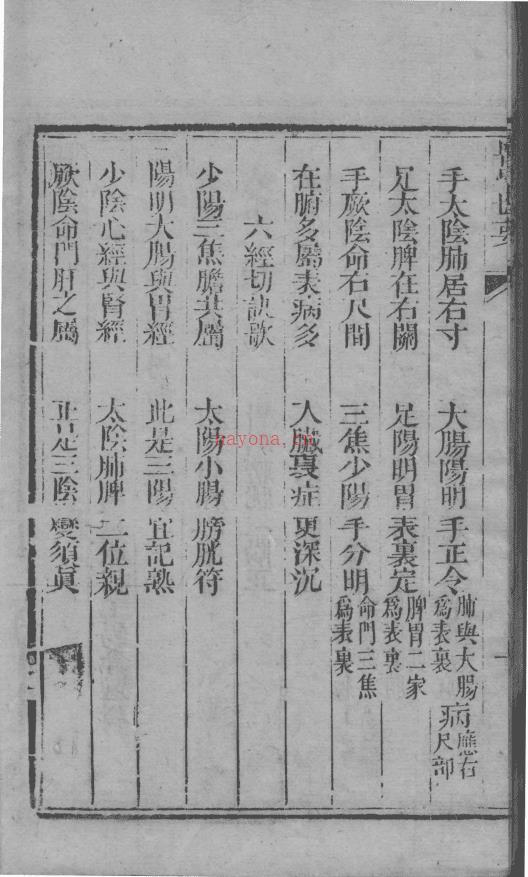 手太陰肺居右寸　大腸陽明手正令 肺與大腸爲表裏 病應右尺部
足太陰脾在右關　足陽明胃表裏定 脾胃二家爲表裏
手厥陰命右尺間　三焦少陽手分明 命門三焦爲表裏
在腑多屬表病多　入臟裏症更深沉
六經切訣歌
少陽三焦膽共屬　太陽小腸膀胱符
陽明大腸與胃經　此是三陽宜記熟
少陰心經與腎經　太陰肺脾二位親
厥陰命門肝之屬　正是三陰變須眞
nayona.cn